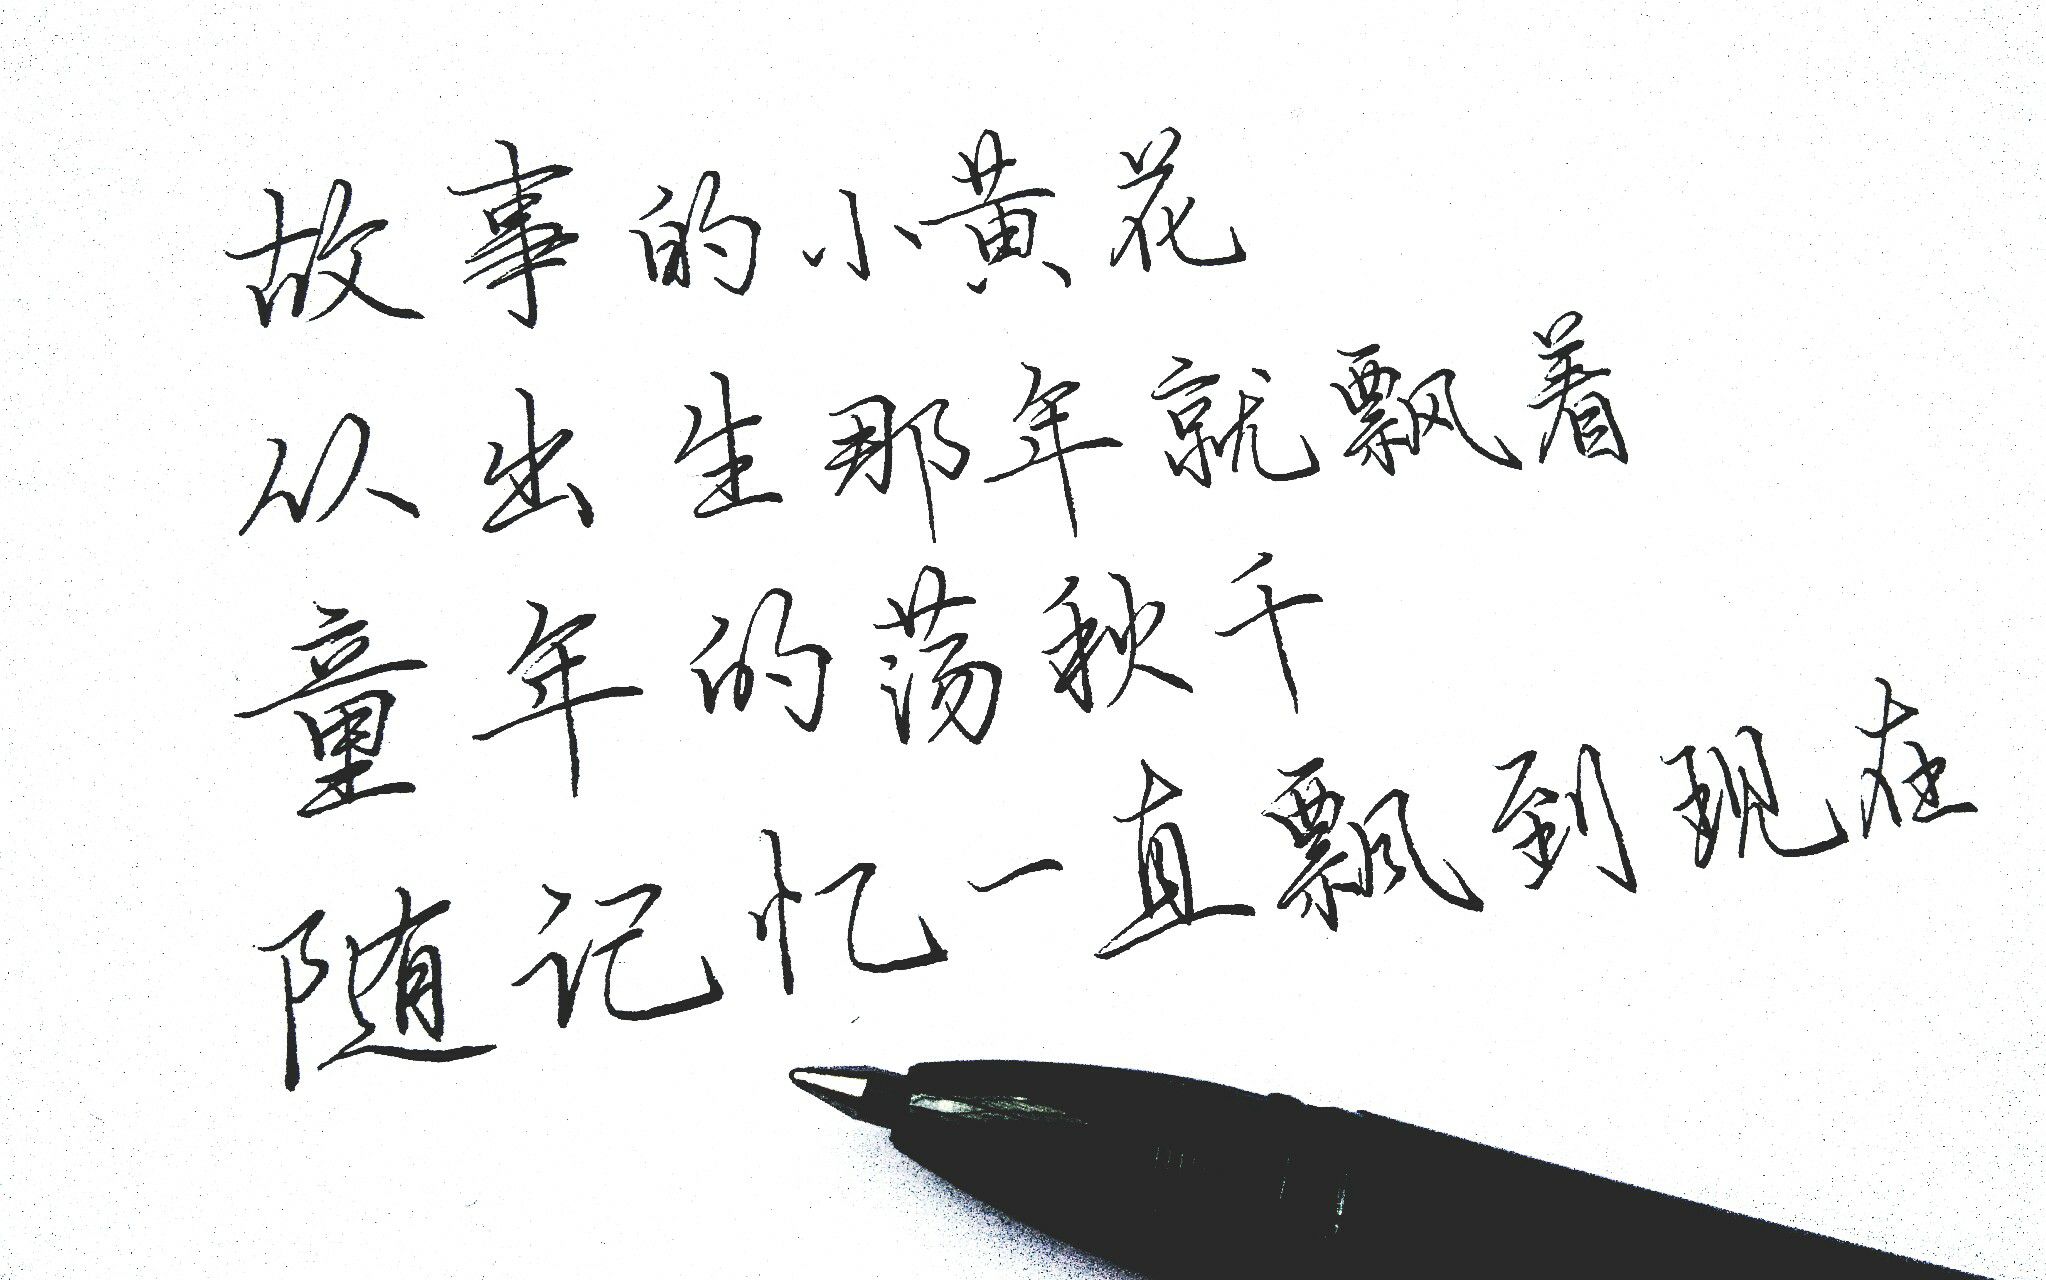 故事的小黄花
从出生那年就飘着
童年的荡秋千
随记忆一直飘到现在